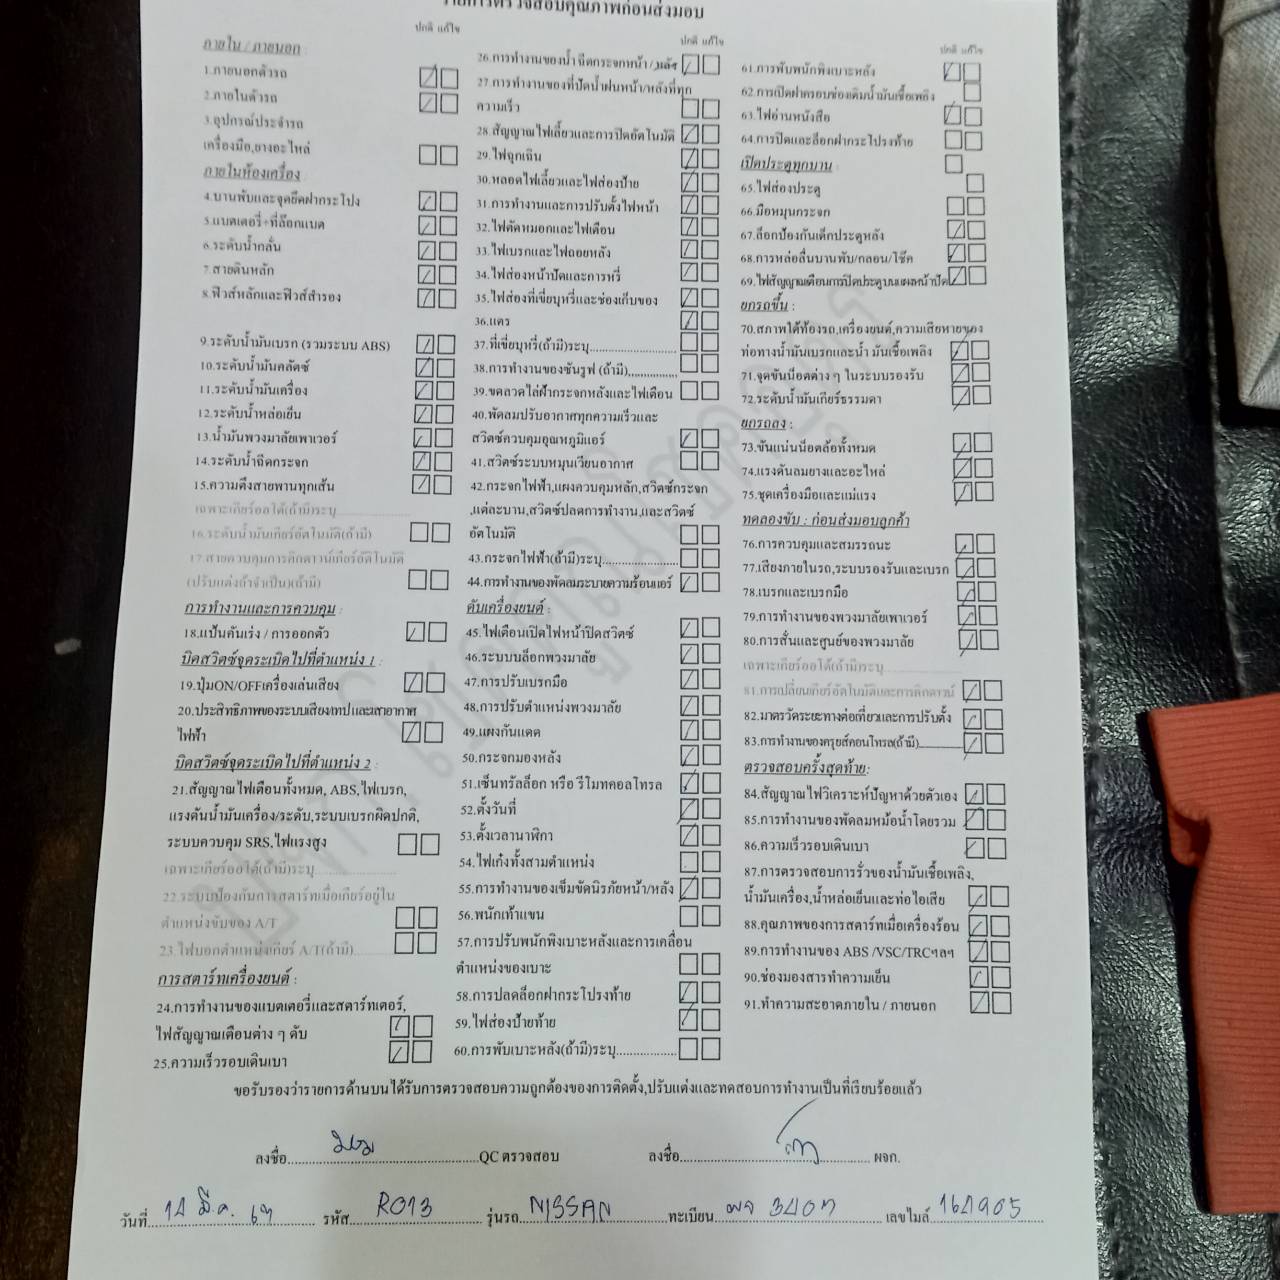 รายการตรวจสอบคุณภาพก่อนส่งมอบ
ปกติ แก้ไข
ภายใน / ภายนอก :
1.ภายนอกตัวรถ
2.ภายในตัวรถ
3.อุปกรณ์ประจำรถ
เครื่องมือ,ยางอะไหล่
ภายในห้องเครื่อง :
4.บานพับและจุดยึดฝากระโปง
5.แบตเตอรี่+ที่ล็อกแบต
6.ระดับน้ำกลั่น
7.สายดินหลัก
8.ฟิวส์หลักและฟิวส์สำรอง
9.ระดับน้ำมันเบรก (รวมระบบ ABS)
10.ระดับน้ำมันคลัตซ์
11.ระดับน้ำมันเครื่อง
12.ระดับน้ำหล่อเย็น
13.น้ำมันพวงมาลัยเพาเวอร์
14.ระดับน้ำฉีดกระจก
15.ความตึงสายพานทุกเส้น
เฉพาะเกียร์ออโต้(ถ้ามี)ระบุ
16.ระดับน้ำมันเกียร์อัตโนมัติ(ถ้ามี)
17.สายควบคุมการคิกดาวน์เกียร์อัติโนมัติ
(ปรับแต่งถ้าจำเป็น)(ถ้ามี)
การทำงานและการควบคุม :
18.แป้นคันเร่ง / การออกตัว
บิดสวิตซ์จุดระเบิดไปที่ตำแหน่ง 1 :
19.ปุ่มON/OFFเครื่องเล่นเสียง
20.ประสิทธิภาพของระบบเสียง/เทปและเสาอากาศ
ไฟฟ้า
บิดสวิตซ์จุดระเบิดไปที่ตำแหน่ง 2 :
21.สัญญาณไฟเตือนทั้งหมด, ABS,ไฟเบรก,
แรงดันน้ำมันเครื่อง/ระดับ,ระบบเบรกผิดปกติ,
ระบบควบคุม SRS,ไฟแรงสูง
เฉพาะเกียร์ออโต้(ถ้ามี)ระบุ
22.ระบบป้องกันการสตาร์ทเมื่อเกียร์อยู่ใน
ตำแหน่งขับของ A/T
23.ไฟบอกตำแหน่งเกียร์ A/T(ถ้ามี)
การสตาร์ทเครื่องยนต์ :
24.การทำงานของแบตเตอรี่และสตาร์ทเตอร์,
ไฟสัญญาณเตือนต่าง ๆ ดับ
25.ความเร็วรอบเดินเบา
ปกติ แก้ไข
26.การทำงานของน้ำ ฉีดกระจกหน้า / หลัง
27.การทำงานของที่ปัดน้ำฝนหน้า/หลังที่ทุก
ความเร็ว
28.สัญญาณไฟเลี้ยวและการปิดอัตโนมัติ
29.ไฟฉุกเฉิน
30.หลอดไฟเลี้ยวและไฟส่องป้าย
31.การทำงานและการปรับตั้งไฟหน้า
32.ไฟตัดหมอกและไฟเตือน
33.ไฟเบรกและไฟถอยหลัง
34.ไฟส่องหน้าปัดและการหรี่
35.ไฟส่องที่เขี่ยบุหรี่และช่องเก็บของ
36.แตร
37.ที่เขี่ยบุหรี่(ถ้ามี)ระบุ
38.การทำงานของซันรูฟ (ถ้ามี)
39.ขดลวดไล่ฝ้ากระจกหลังและไฟเตือน
40.พัดลมปรับอากาศทุกความเร็วและ
สวิตซ์ควบคุมอุณหภูมิแอร์
41.สวิตซ์ระบบหมุนเวียนอากาศ
42.กระจกไฟฟ้า,แผงควบคุมหลัก,สวิตซ์กระจก
,แต่ละบาน,สวิตซ์ปลดการทำงาน,และสวิตซ์
อัตโนมัติ
43.กระจกไฟฟ้า(ถ้ามี)ระบุ
44.การทำงานของพัดลมระบายความร้อนแอร์
ดับเครื่องยนต์ :
45.ไฟเตือนเปิดไฟหน้าปิดสวิตซ์
46.ระบบบล็อกพวงมาลัย
47.การปรับเบรกมือ
48.การปรับตำแหน่งพวงมาลัย
49.แผงกันแดด
50.กระจกมองหลัง
51.เซ็นทรัลล็อก หรือ รีโมทคอลโทรล
52.ตั้งวันที่
53.ตั้งเวลานาฬิกา
54.ไฟเก๋งทั้งสามตำแหน่ง
55.การทำงานของเข็มขัดนิรภัยหน้า/หลัง
56.พนักเท้าแขน
57.การปรับพนักพิงเบาะหลังและการเคลื่อน
ตำแหน่งของเบาะ
58.การปลดล็อกฝากระโปรงท้าย
59.ไฟส่องป้ายท้าย
60.การพับเบาะหลัง(ถ้ามี)ระบุ
ปกติ แก้ไข
61.การพับพนักพิงเบาะหลัง
62.การเปิดฝาครอบช่องเติมน้ำมันเชื้อเพลิง
63.ไฟอ่านหนังสือ
64.การปิดและล็อกฝากระโปรงท้าย
เปิดประตูทุกบาน :
65.ไฟส่องประตู
66.มือหมุนกระจก
67.ล็อกป้องกันเด็กประตูหลัง
68.การหล่อลื่นบานพับ/กลอน/โช๊ค
69.ไฟสัญญาณเตือนการปิดประตูบนแผงหน้าปัด
ยกรถขึ้น :
70.สภาพใต้ท้องรถ,เครื่องยนต์,ความเสียหายของ
ท่อทางน้ำมันเบรกและน้ำ มันเชื้อเพลิง
71.จุดขันน็อตต่าง ๆ ในระบบรองรับ
72.ระดับน้ำมันเกียร์ธรรมดา
ยกรถลง :
73.ขันแน่นน็อตล้อทั้งหมด
74.แรงดันลมยางและอะไหล่
75.ชุดเครื่องมือและแม่แรง
ทดลองขับ : ก่อนส่งมอบลูกค้า
76.การควบคุมและสมรรถนะ
77.เสียงภายในรถ,ระบบรองรับและเบรก
78.เบรกและเบรกมือ
79.การทำงานของพวงมาลัยเพาเวอร์
80.การสั่นและศูนย์ของพวงมาลัย
เฉพาะเกียร์ออโต้(ถ้ามี)ระบุ
81.การเปลี่ยนเกียร์อัตโนมัติและการคิกดาวน์
82.มาตรวัดระยะทางต่อเที่ยวและการปรับตั้ง
83.การทำงานของครุยส์คอนโทรล(ถ้ามี)
ตรวจสอบครั้งสุดท้าย:
84.สัญญาณไฟวิเคราะห์ปัญหาด้วยตัวเอง
85.การทำงานของพัดลมหม้อน้ำโดยรวม
86.ความเร็วรอบเดินเบา
87.การตรวจสอบการรั่วของน้ำมันเชื้อเพลิง,
น้ำมันเครื่อง,น้ำหล่อเย็นและท่อไอเสีย
88.คุณภาพของการสตาร์ทเมื่อเครื่องร้อน
89.การทำงานของ ABS /VSC/TRCฯลฯ
90.ช่องมองสารทำความเย็น
91.ทำความสะอาดภายใน / ภายนอก
ขอรับรองว่ารายการด้านบนได้รับการตรวจสอบความถูกต้องของการติดตั้ง,ปรับแต่งและทดสอบการทำงานเป็นที่เรียบร้อยแล้ว
ลงชื่อ QC ตรวจสอบ ลงชื่อ ผจก.
วันที่ 14 มี.ค. 67 รหัส R013 รุ่นรถ NISSAN ทะเบียน เลขไมล์ 164905